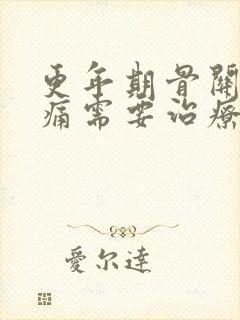 更年期骨關
痛需要治療
愛尔達